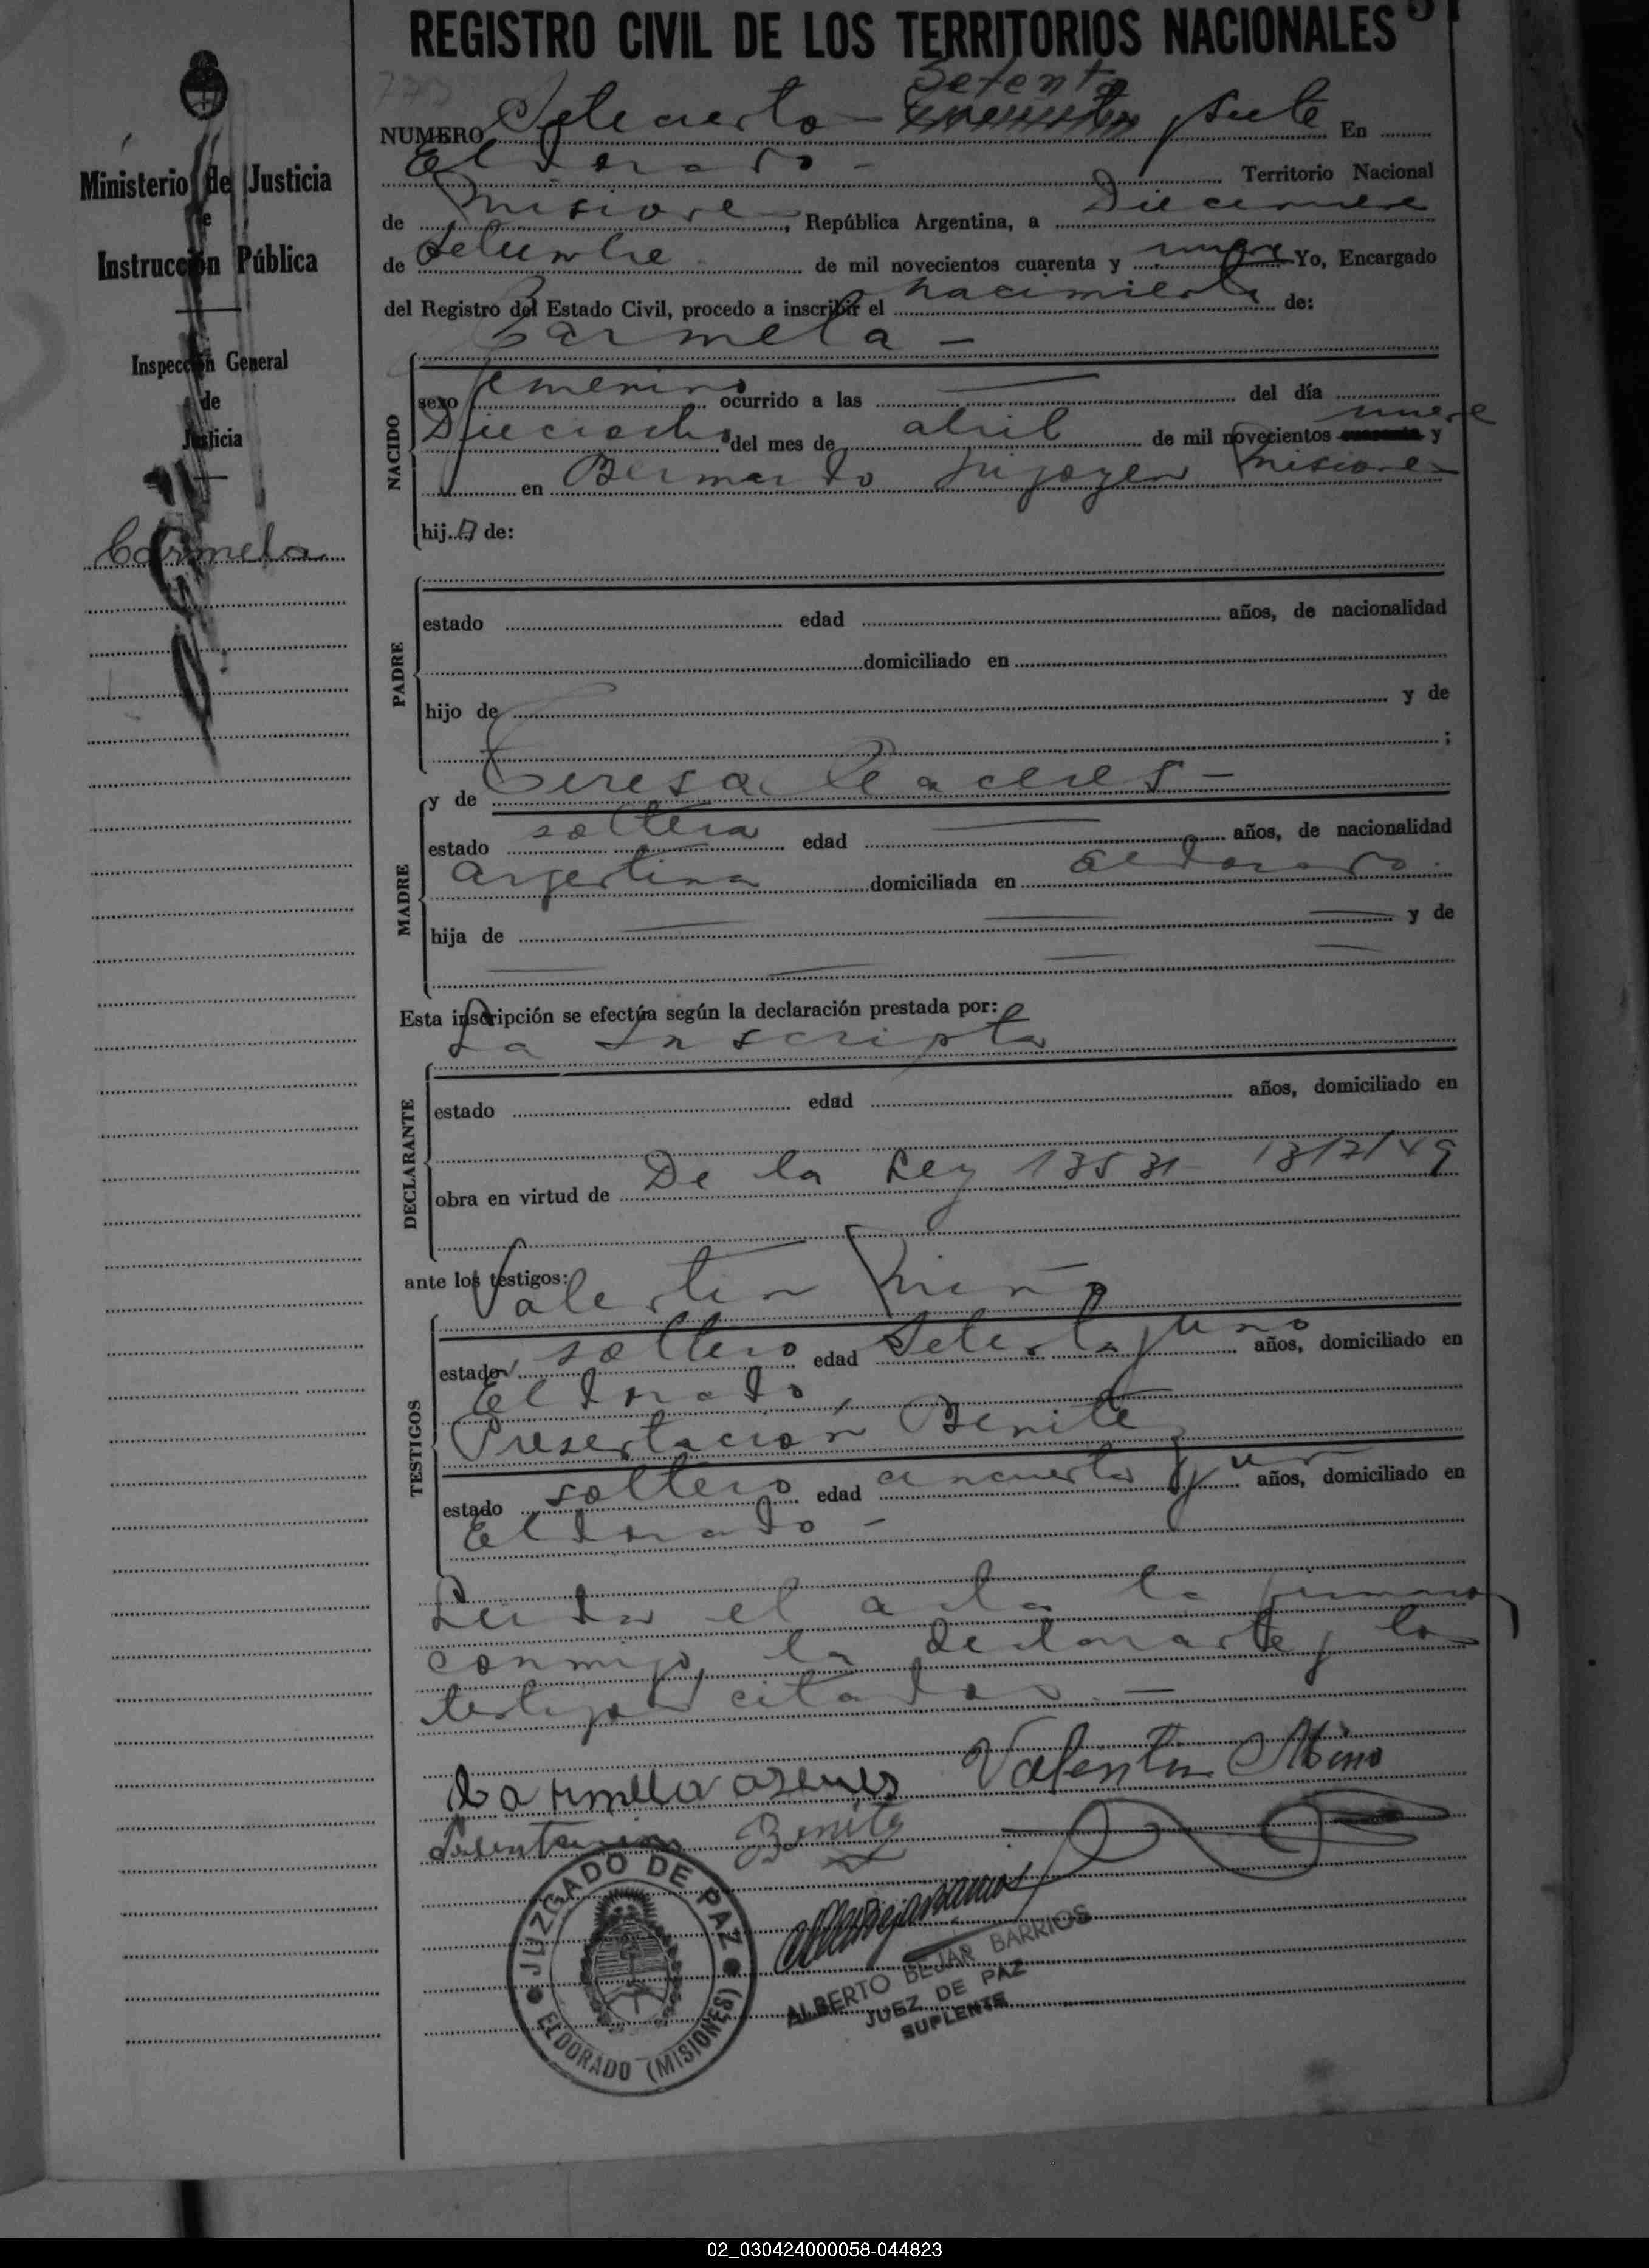 REGISTRO CIVIL DE LOS TERRITORIOS NACIONALES
777
Setenta
NUMERO Setecientos y siete En
Eldorado - Territorio Nacional
de Misiones, República Argentina, a Diecinueve
de Setiembre de mil novecientos cuarenta y nueve Yo, Encargado
del Registro del Estado Civil, procedo a inscribir el nacimiento de:
Carmela -
Ministerio de Justicia
e
Instrucción Pública
Inspección General
de
Justicia
Carmela
NACIDO
sexo femenino ocurrido a las del día
Dieciocho del mes de abril de mil novecientos cuarenta y nueve
en Bernardo Irigoyen Misiones
hij.a de:
PADRE
estado edad años, de nacionalidad
domiciliado en
hijo de y de
;
MADRE
y de Teresa Caceres -
estado soltera edad años, de nacionalidad
argentina domiciliada en Eldorado.
hija de y de
Esta inscripción se efectúa según la declaración prestada por:
La Inscripta
DECLARANTE
estado edad años, domiciliado en
obra en virtud de De la Ley 13531 - 13/7/49
ante los testigos:
Valentin Miño
TESTIGOS
estado soltero edad Setenta y uno años, domiciliado en
Eldorado,
Presentación Benitez
estado soltero edad cincuenta y un años, domiciliado en
Eldorado -
Leida el acta la firman
conmigo, la declarante y los
testigos citados. -
Valentin Miño
Benitez
JUZGADO DE PAZ
ELDORADO (MISIONES)
ALBERTO BEJAR BARRIOS
JUEZ DE PAZ
SUPLENTE
02_030424000058-044823